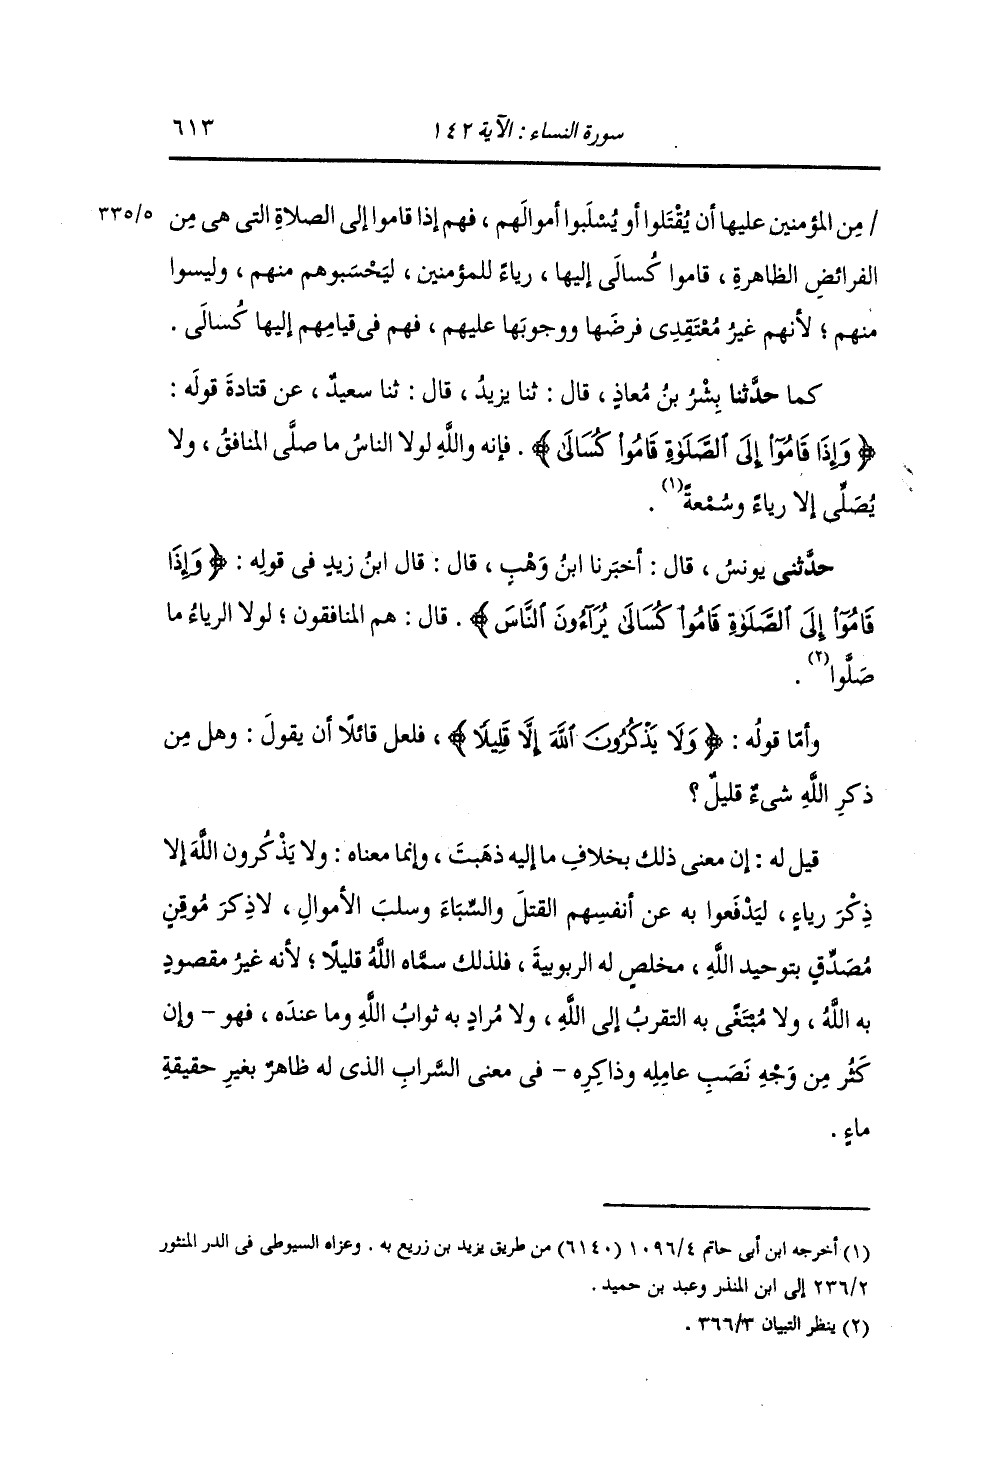 سورة النساء : الآية ١٤٢
٦١٣
/ مِن المؤمنين عليها أن يُقْتَلوا أو يُسْلَبوا أموالَهم ، فهم إذا قاموا إلى الصلاةِ التى هى مِن ٣٣٥/٥
الفرائضِ الظاهرةِ ، قاموا كُسالَى إليها ، رياءً للمؤمنين ، ليَحْسَبوهم منهم ، وليسوا
منهم ؛ لأنهم غيرُ مُعْتَقِدِى فرضَها ووجوبَها عليهم ، فهم فى قيامِهم إليها كُسالَى .
كما حدَّثنا بِشْرُ بنُ مُعاذٍ ، قال : ثنا يزيدُ ، قال : ثنا سعيدٌ ، عن قتادةَ قولَه :
﴿ وَإِذَا قَامُوٓا۟ إِلَى ٱلصَّلَوٰةِ قَامُوا۟ كُسَالَىٰ ﴾ . فإنه واللَّهِ لولا الناسُ ما صلَّى المنافقُ ، ولا
يُصَلِّى إلا رياءً وسُمْعةً(١) .
حدَّثنى يونسُ ، قال : أخبَرنا ابنُ وَهْبٍ ، قال : قال ابنُ زيدٍ فى قولِه : ﴿ وَإِذَا
قَامُوٓا۟ إِلَى ٱلصَّلَوٰةِ قَامُوا۟ كُسَالَىٰ يُرَآءُونَ ٱلنَّاسَ ﴾ . قال : هم المنافقون ؛ لولا الرياءُ ما
صَلَّوا(٢) .
وأمّا قولُه : ﴿ وَلَا يَذْكُرُونَ ٱللَّهَ إِلَّا قَلِيلًا ﴾ ، فلعل قائلًا أن يقولَ : وهل مِن
ذكرِ اللَّهِ شىءٌ قليلٌ ؟
قيل له : إن معنى ذلك بخلافِ ما إليه ذهَبتَ ، وإنما معناه : ولا يَذْكُرون اللَّهَ إلا
ذِكْرَ رياءٍ ، ليَدْفَعوا به عن أنفسِهم القتلَ والسِّبَاءَ وسلبَ الأموالِ ، لا ذِكرَ مُوقِنٍ
مُصَدِّقٍ بتوحيد اللَّهِ ، مخلصٍ له الربوبيةَ ، فلذلك سمَّاه اللَّهُ قليلًا ؛ لأنه غيرُ مقصودٍ
به اللَّهُ ، ولا مُبْتَغًى به التقربُ إلى اللَّهِ ، ولا مُرادٍ به ثوابُ اللَّهِ وما عندَه ، فهو – وإن
كَثُر مِن وَجْهِ نَصَبِ عاملِه وذاكِرِه – فى معنى السَّرابِ الذى له ظاهرٌ بغيرِ حقيقةِ
ماءٍ .
(١) أخرجه ابن أبى حاتم ١٠٩٦/٤ (٦١٤٠) من طريق يزيد بن زريع به . وعزاه السيوطى فى الدر المنثور
٢٣٦/٢ إلى ابن المنذر وعبد بن حميد .
(٢) ينظر التبيان ٣٦٦/٣ .